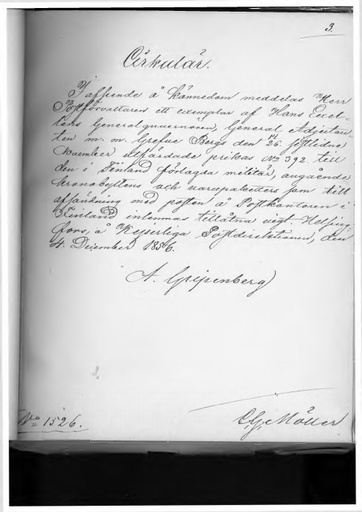 3.
Cirkulär.
I afseende å kännedom meddelas Herr
Postförvaltaren ett exemplar af Hans Excel-
lens Generalguvernören, General Adjutan-
ten m. m. Grefve Bergs den 26 sistledne
November utfärdade prikas No 392 till
den i Finland förlagda militär, angående
kronobyltens och varupaketters som till
afsändning med posten å Postkontoren i
Finland inlemnas tillåtna vigt. Helsing-
fors, å Kejserliga Postdirektionen, den
4 December 1856.
A. Gripenberg
No 1526.
C.G. Möller